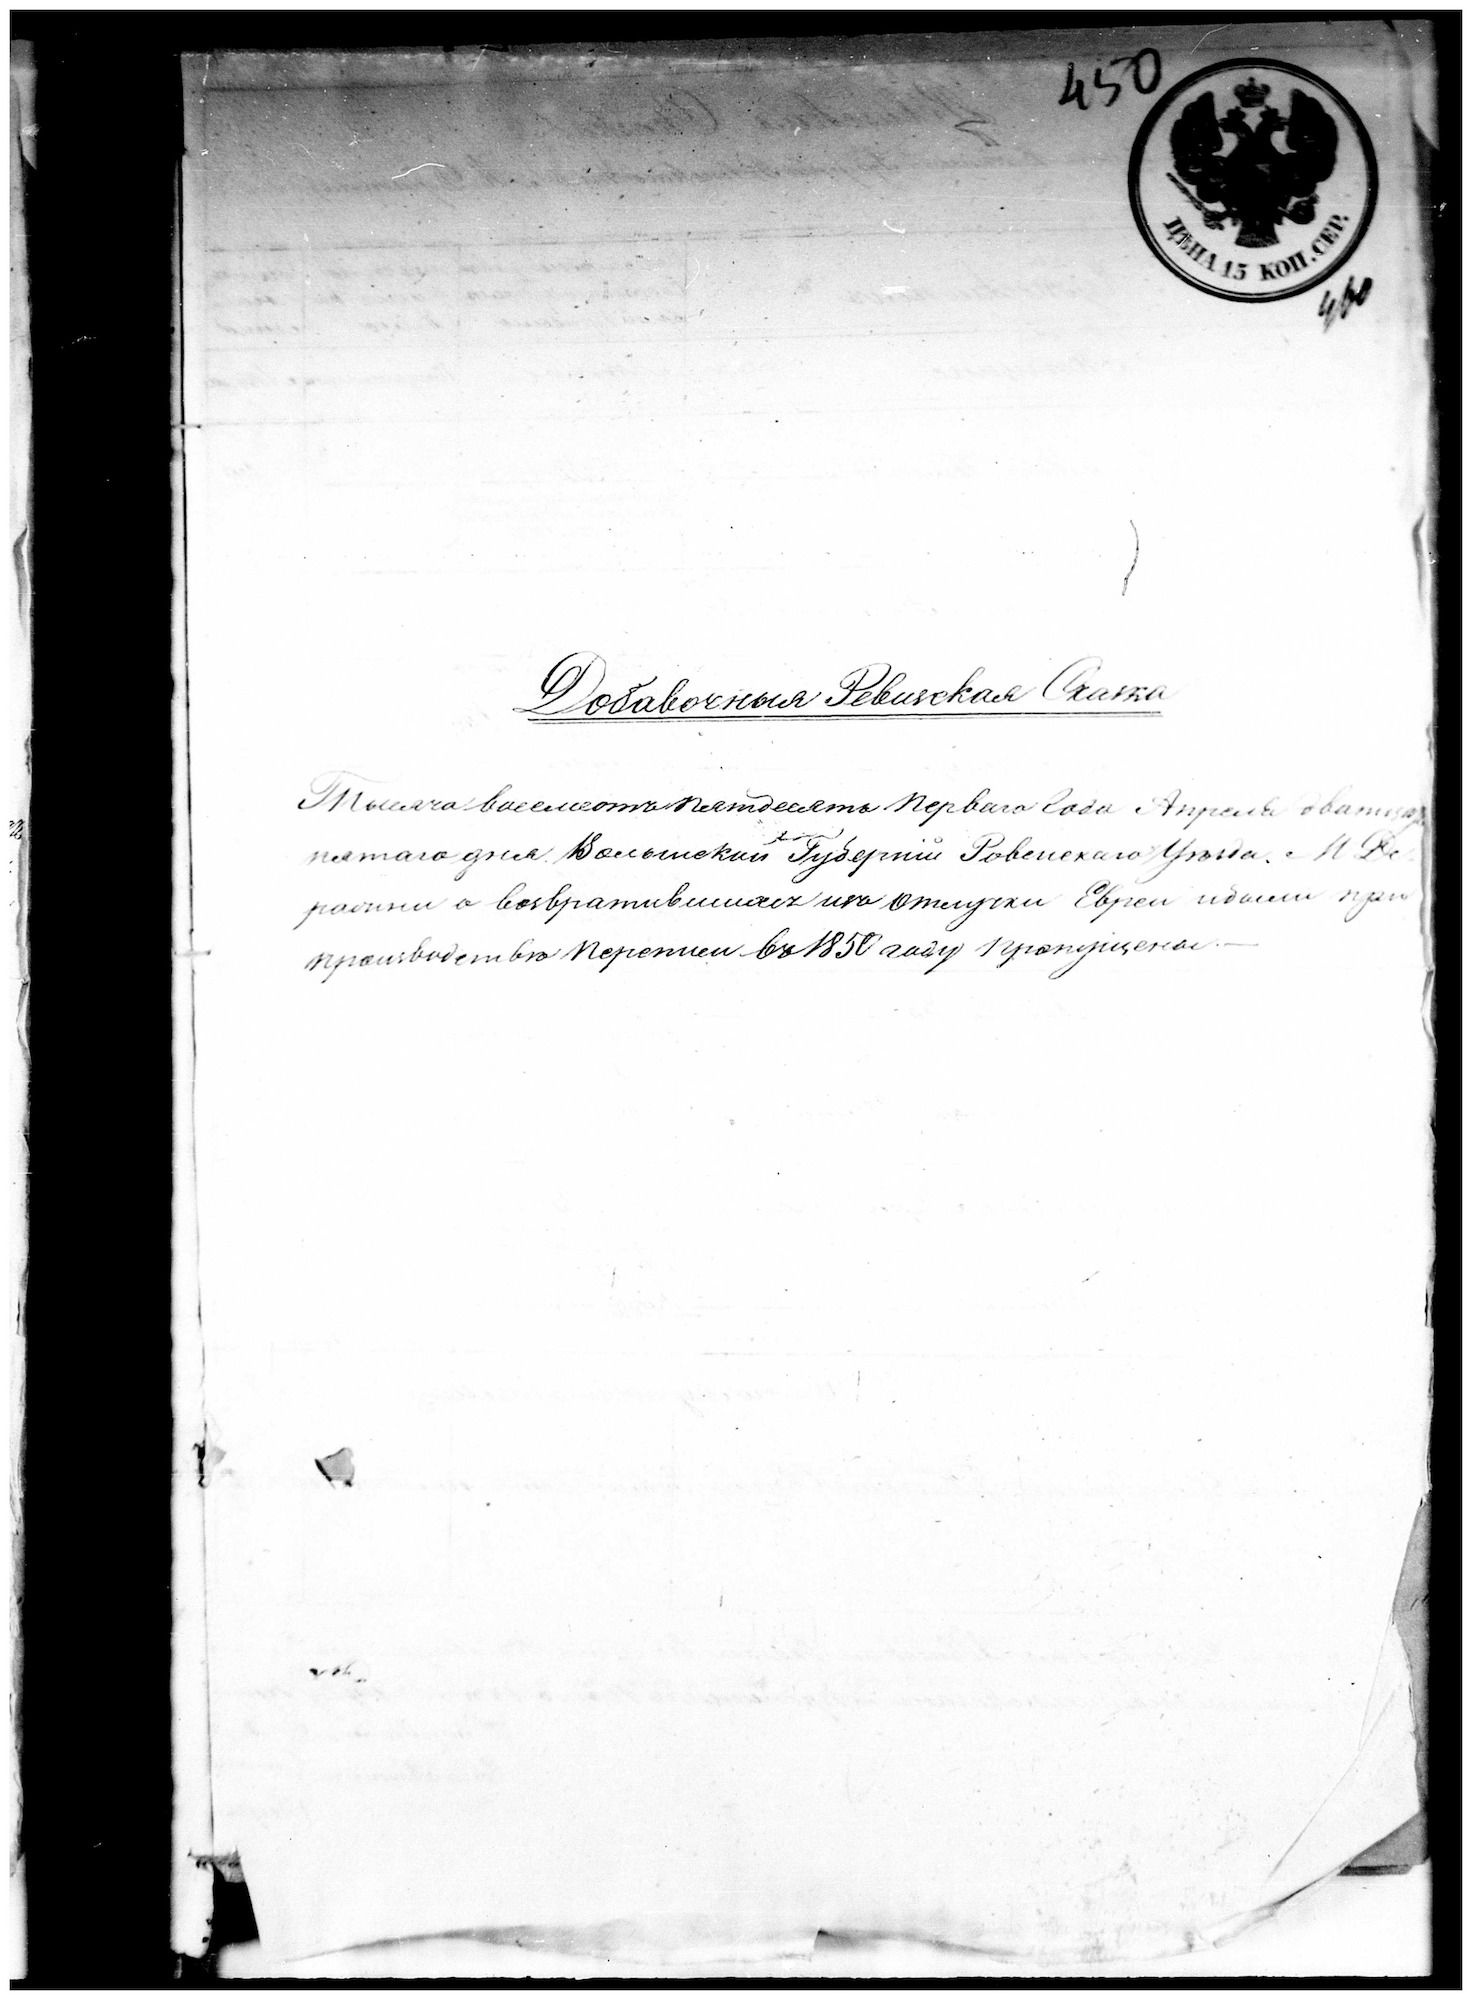 450
ЦѢНА 15 КОП. СЕР.
Добавочныя Ревизская Сказка
Тысяча восемсотъ пятдесятъ перваго Года Апреля дватцать
пятаго дня Волынской Губерніи Ровенскаго Уезда. М Де
ражни о возвратившихся изъ отлучки Евреи
производствѣ переписи въ 1850 году пропущены.—